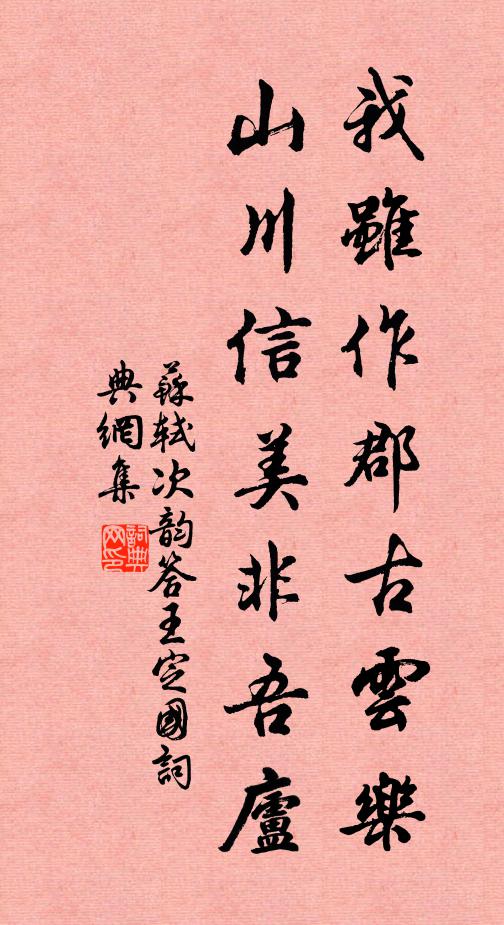 我雖作郡古雲樂
山川信美非吾廬
蘇軾次韵答王定國詞
典網集
詞典网印